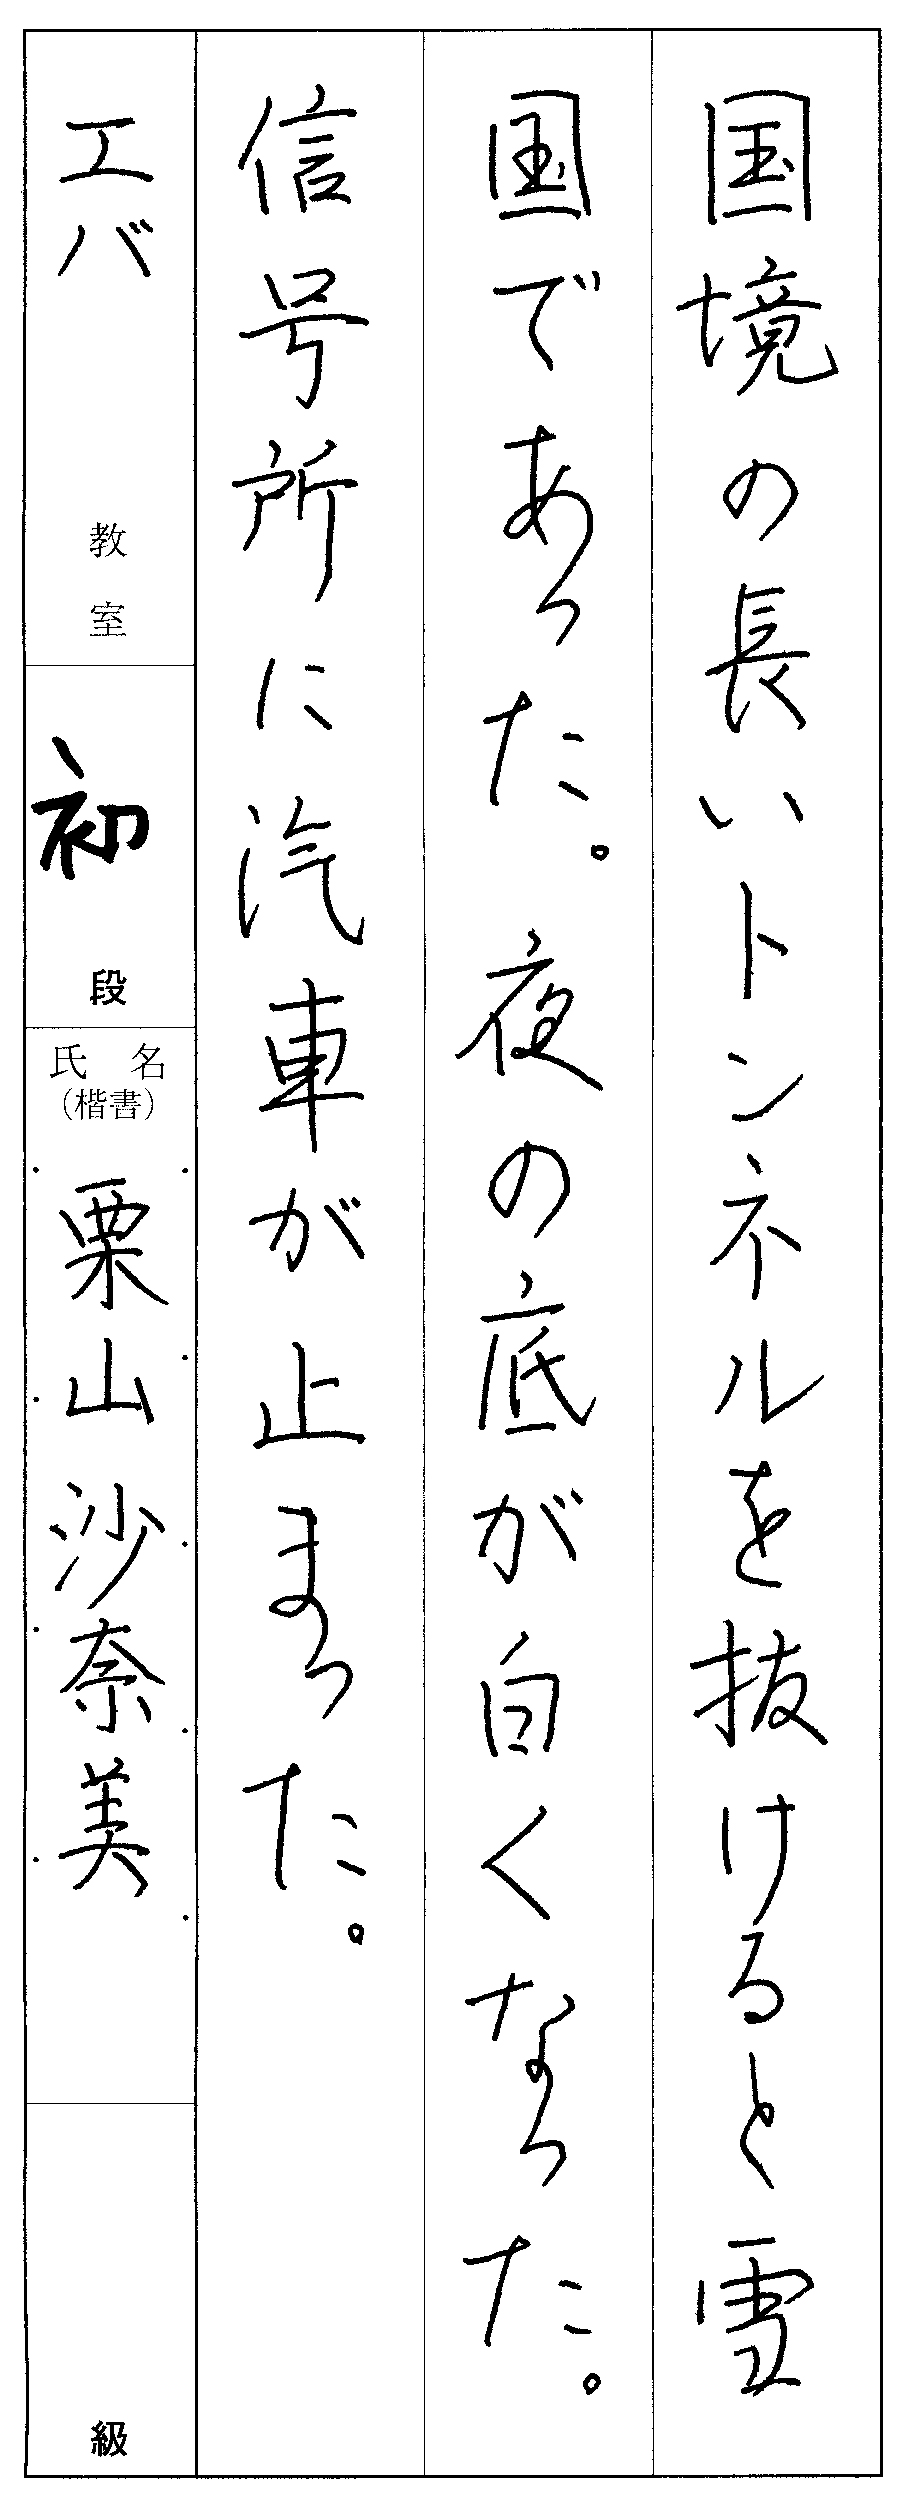 国境の長いトンネルを抜けると雪
国であった。夜の底が白くなった。
信号所に汽車が止まった。
エバ 教室
初 段
氏名
（楷書）
栗山沙奈美
級